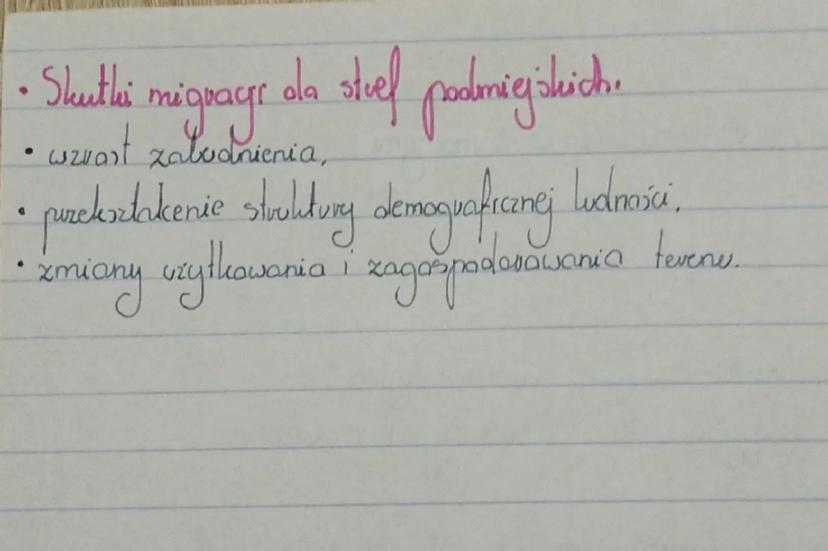 • Skutki migracji dla stref podmiejskich.
• wzrost zaludnienia,
• przekształcenie struktury demograficznej ludności,
• zmiany użytkowania i zagospodarowania terenu.